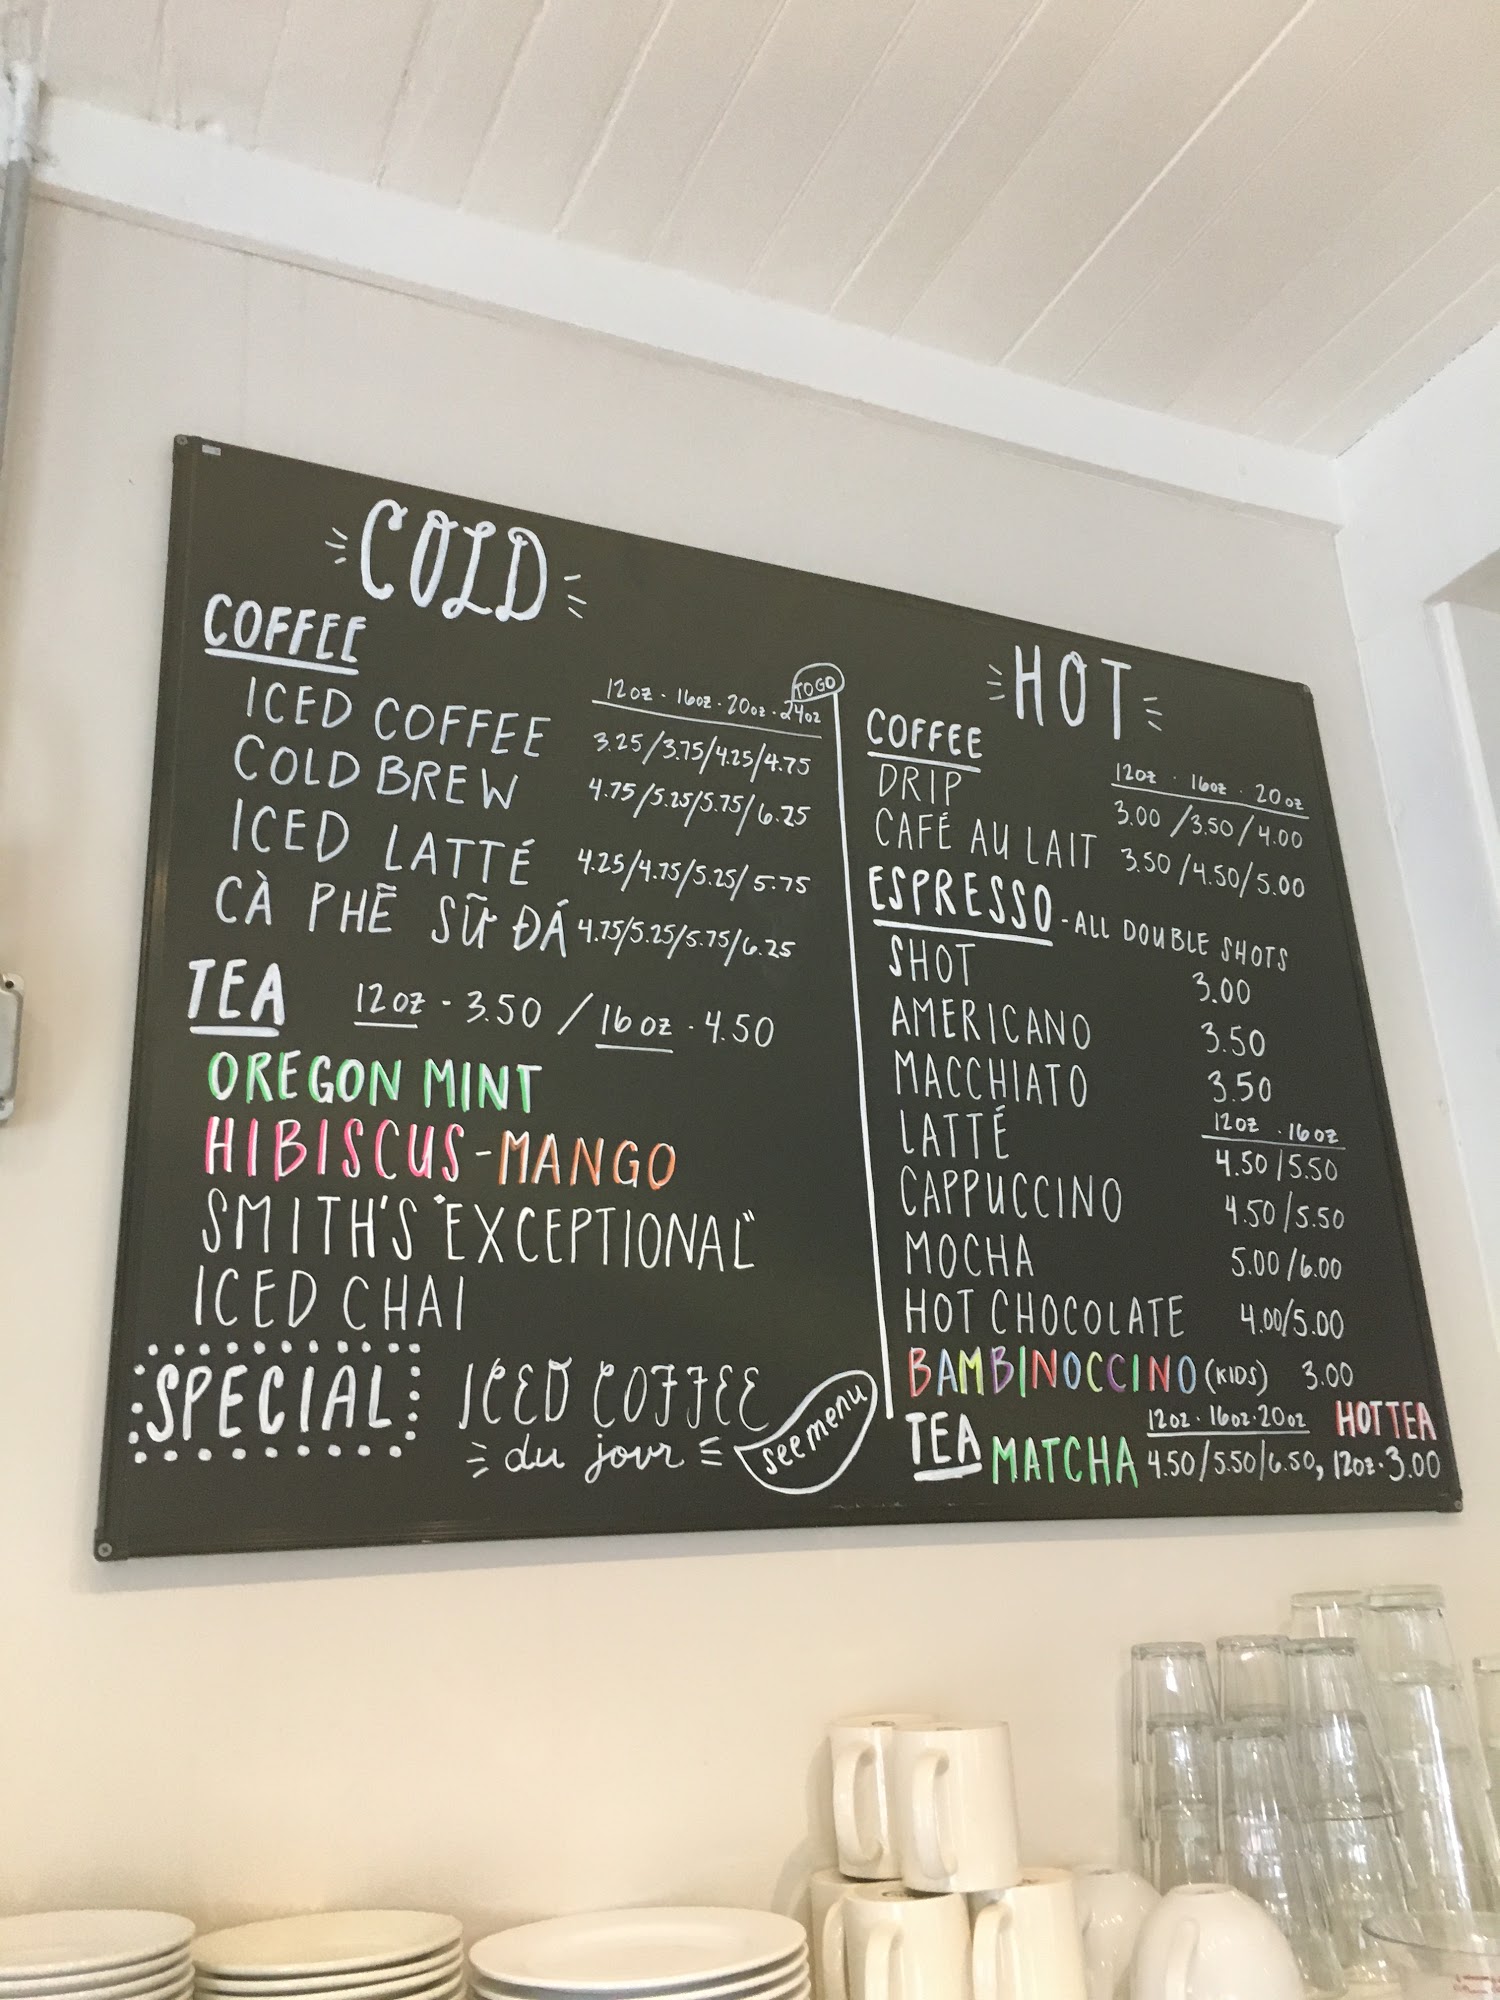 COLD
COFFEE
TO GO
12oz · 16oz · 20oz · 24oz
ICED COFFEE 3.25/3.75/4.25/4.75
COLD BREW 4.75/5.25/5.75/6.25
ICED LATTÉ 4.25/4.75/5.25/5.75
CÀ PHÊ SỮ ĐÁ 4.75/5.25/5.75/6.25
TEA 12oz - 3.50 / 16oz · 4.50
OREGON MINT
HIBISCUS-MANGO
SMITH'S "EXCEPTIONAL"
ICED CHAI
SPECIAL ICED COFFEE
du jour
see menu
HOT
COFFEE
12oz · 16oz · 20oz
DRIP 3.00/3.50/4.00
CAFÉ AU LAIT 3.50/4.50/5.00
ESPRESSO - ALL DOUBLE SHOTS
SHOT 3.00
AMERICANO 3.50
MACCHIATO 3.50
12oz · 16oz
LATTÉ 4.50/5.50
CAPPUCCINO 4.50/5.50
MOCHA 5.00/6.00
HOT CHOCOLATE 4.00/5.00
BAMBINOCCINO (KIDS) 3.00
12oz · 16oz · 20oz HOT TEA
TEA MATCHA 4.50/5.50/6.50, 12oz · 3.00